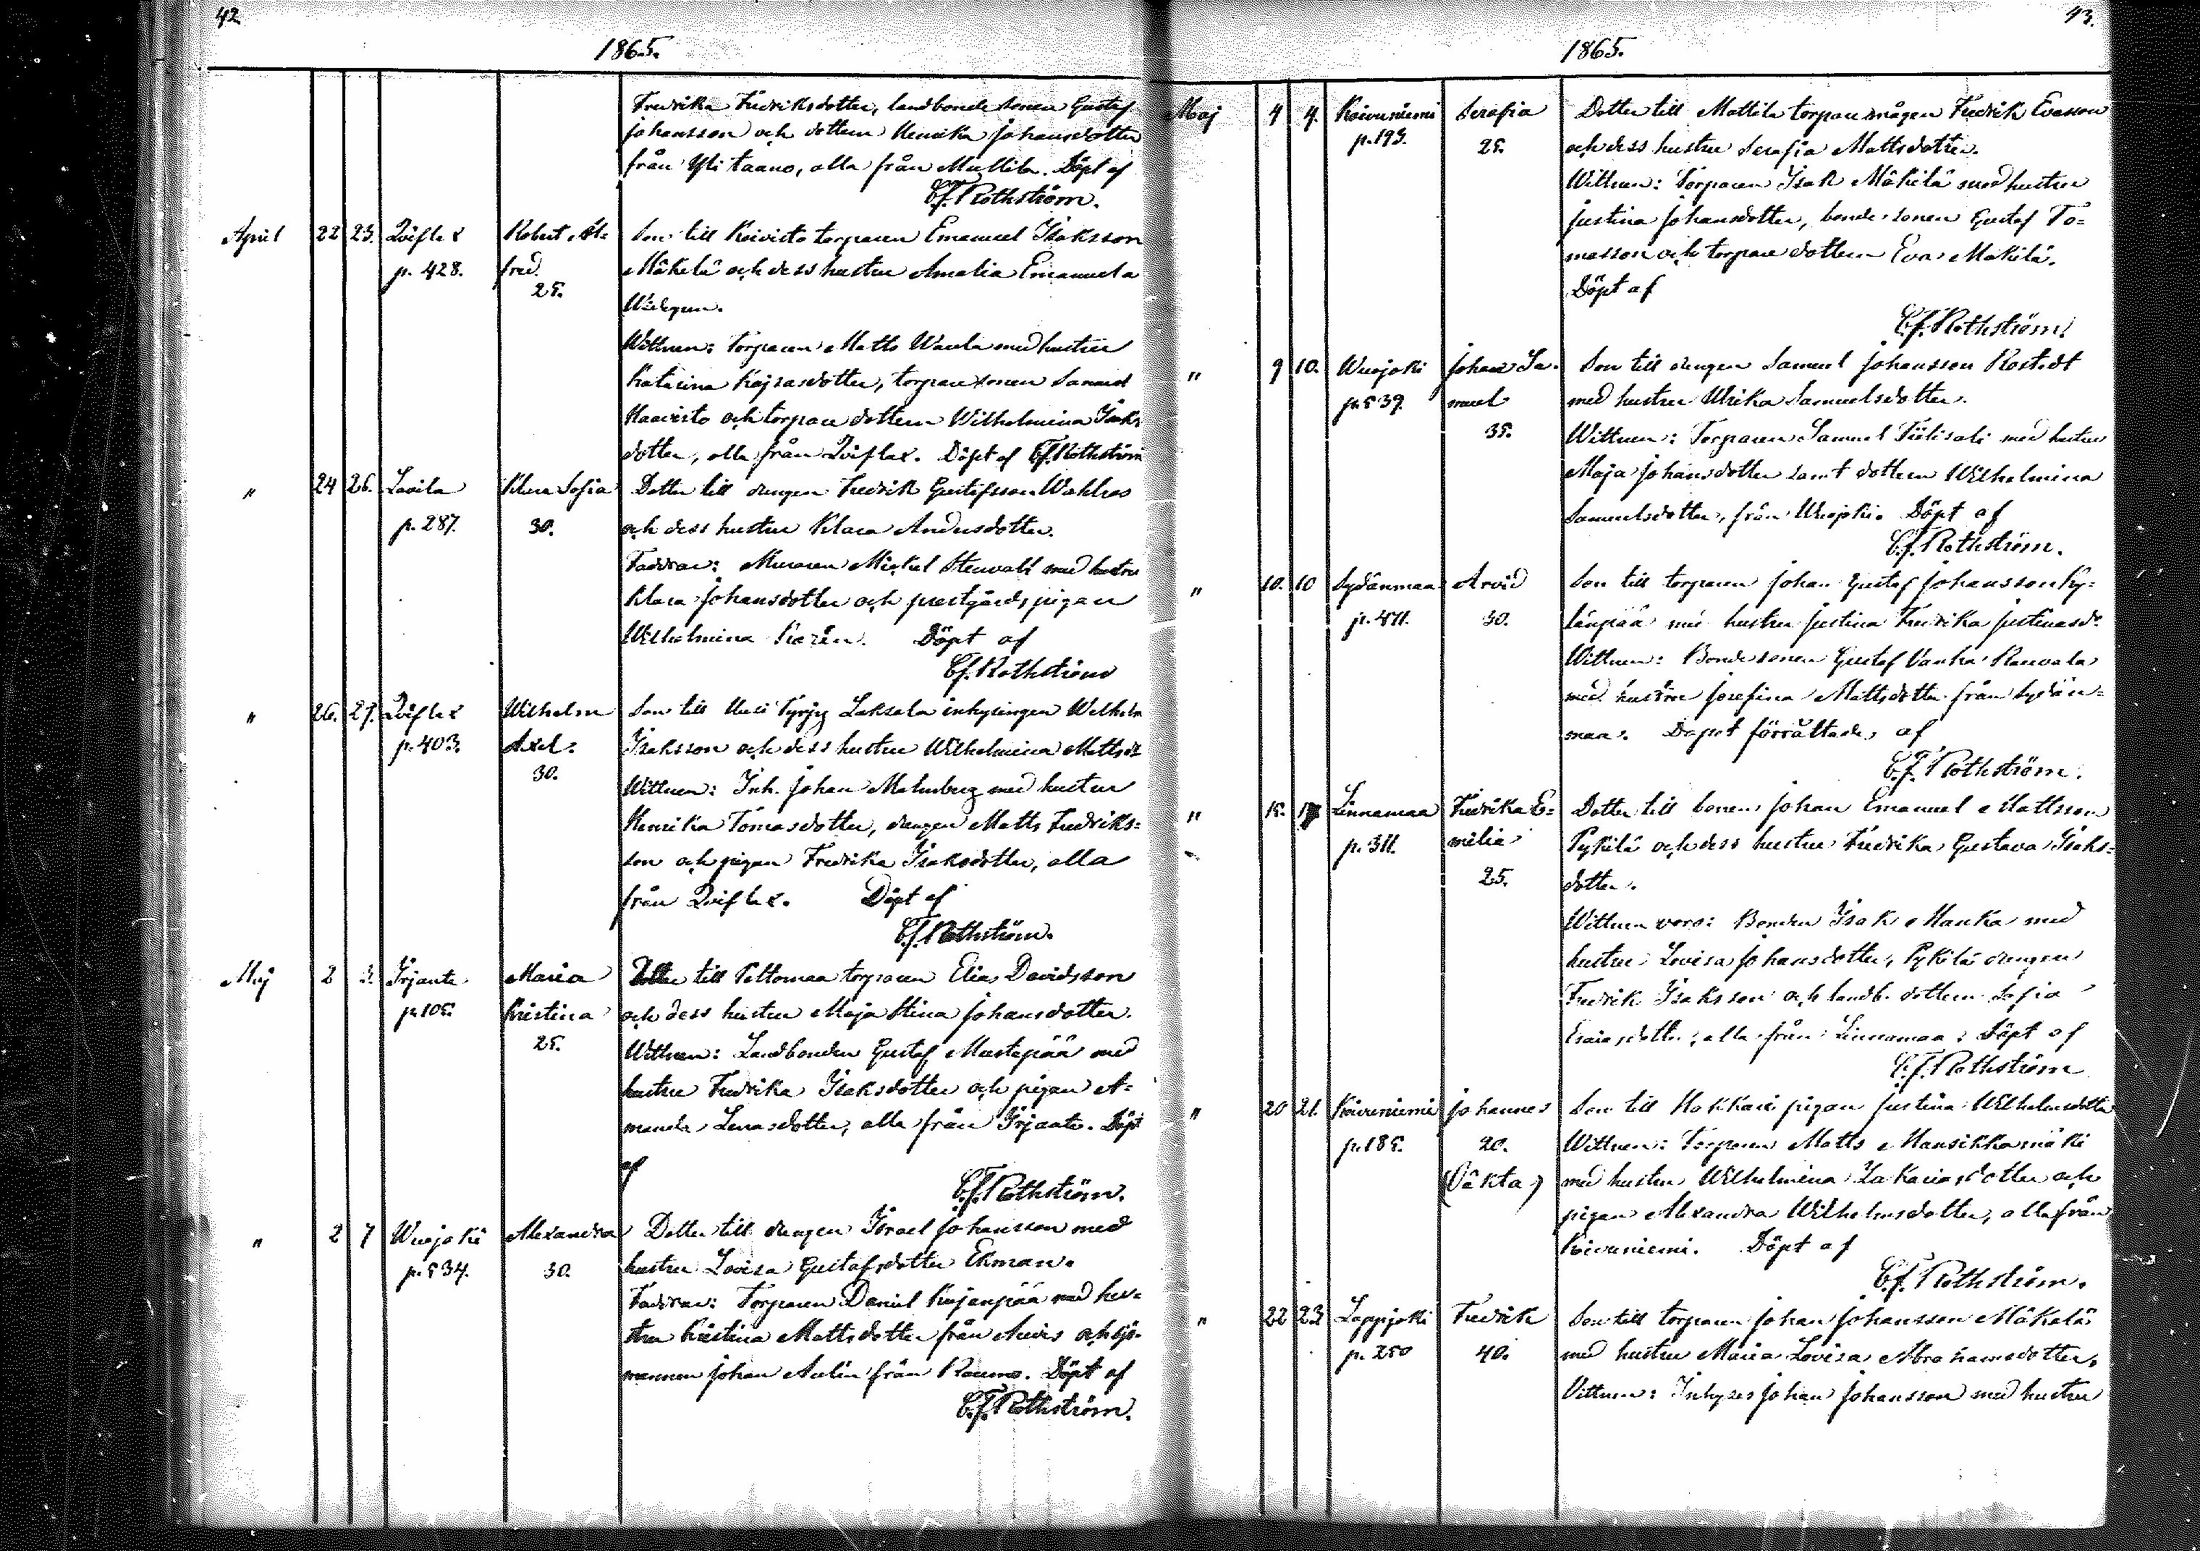 42
1865.
Fredrika Fredriksdotter, landbonde sonen Gustaf
Johansson och dottern Henrika Johansdotter
från Yli taano, alla från Mullila. Döpt af
C.f. Rothström.
April 22 23. Qviflax Robert Al= Son till Koivisto torparen Emanuel Isaksson
p. 428. fred. Mäkelä och dess hustru Amalia Emanuela
25.
Wittnen: Torparen Matts Waula med hustru
Katarina Kajsasdotter, torparesonen Samuel
Haavisto och torpare dottern Wilhelmina Isaks
dotter, alla från Qviflax. Döpt af C.f. Rothström
" 24 26. Lavila Klara Sofia Dotter till drengen Fredrik Gustafsson Wahlros
p. 287. 30. och dess hustru Klara Andersdotter.
Faddrar: Muraren Mickel Stenvall med hustru
Klara Johansdotter och prestgårds pigan
Wilhelmina Döpt af
C.f. Rothström
" 26. 27. Qviflax Wilhelm Son till Uusi Pyrjy Laksala inhysingen Wilhelm
p. 403. Axel. Isaksson och dess hustru Wilhelmina Mattsd:
30. Wittnen: Inh. Johan Malmberg med hustru
Henrika Tomasdotter, drengen Matts Fredriks=
son och pigan Fredrika Isaksdotter, alla
från Qviflax. Döpt af
C.f. Rothström.
Maj 2 3. Irjante Maria Dotter till Peltomaa torparen Elias Davidsson
p. 105. Kristina och dess hustru Maja Stina Johansdotter.
25. Wittnen: Landbonden Gustaf Mustapää med
hustru Fredrika Isaksdotter och pigan A=
manda Lenasdotter, alla från Irjante. Döpt
af
C.f. Rothström.
" 2 7 Wuojoki Alexandra Dotter till drengen Israel Johansson med
p. 534. 30. hustru Lovisa Gustafsdotter Ekman.
Faddrar: Torparen Daniel Kujanpää med hu=
stru Kristina Mattsdotter från Auvis och sjö=
mannen Johan Aulin från Raumo. Döpt af
C.f. Rothström.
43.
1865.
Maj 4 4. Koivuniemi Serafia Dotter till Mattila torpare mågen Fredrik Evasson
p. 193. 25. och dess hustru Serafia Mattsdotter.
Wittnen: Torparen Isak Mäkilä med hustru
Justina Johansdotter, bonde sonen Gustaf To=
masson och torpare dottern Eva Mäkilä.
Döpt af
C.f. Rothström.
" 9 10. Wuojoki Johan Sa= Son till drengen Samuel Johansson Rostedt
p. 539. muel med hustru Ulrika Samuelsdotter.
35. Wittnen: Torparen Samuel Tiilisali med hustru
Maja Johansdotter samt dottern Wilhelmina
Samuelsdotter, från Wuojoki. Döpt af
C.f. Rothström.
" 10. 10 Sydänmaa Arvid Son till torparen Johan Gustaf Johansson Ky=
p. 511. 30. länpää med hustru Justina Fredrika Justinasd:
Wittnen: Bonde sonen Gustaf Vanha Rauvala
med hustru Josefina Mattsdotter från Sydän=
maa. Dopet förrättades af
C.f. Rothström.
" 15. 17 Linnamaa Fredrika E= Dotter till bonen Johan Emanuel Mattsson
p. 311. milia Pykilä och dess hustru Fredrika Gustava Isaks=
25. dotter.
Wittnen voro: Bonden Isak Manka med
hustru Lovisa Johansdotter, Pykilä drengen
Fredrik Isaksson och landb. dottern Sofia
Esaiasdotter, alla från Linnamaa. Döpt af
C.f. Rothström
" 20 21. Koivuniemi Johannes Son till Hakkari pigan Justina Wilhelmsdotter
p. 185. 20. Wittnen: Torparen Matts Mansikkamäki
(Oäkta) med hustru Wilhelmina Zakariasdotter och
pigan Alexandra Wilhelmsdotter, alla från
Koivuniemi. Döpt af
C.f. Rothström.
" 22 23 Lappijoki Fredrik Son till torparen Johan Johansson Mäkelä
p. 250 40. med hustru Maria Lovisa Abrahamsdotter.
Vittnen: Inhyses Johan Johansson med hustru